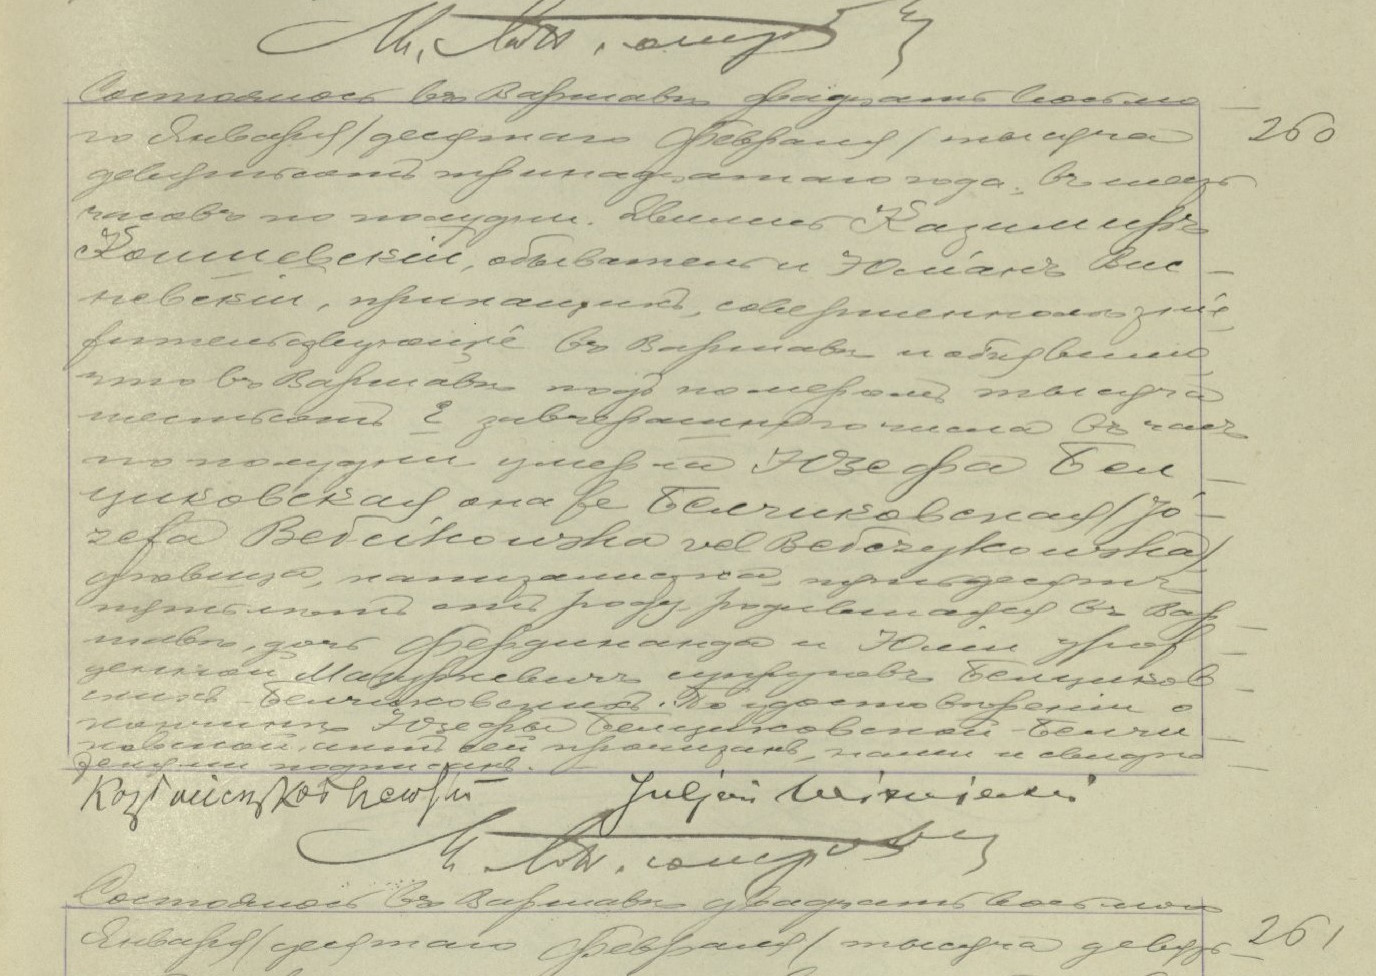 Состоялось въ Варшавѣ двадцать восьма
го Января/десятаго Февраля/тысяча
девятьсотъ тринадцатаго года, въ шесть
часовъ по полудни. Явились Казимиръ
Кошевскій, обыватель и Юліанъ Вис
невскій, прикащикъ, совершеннолѣтніе,
жительствующіе въ Варшавѣ и объявили,
что въ Варшавѣ подъ номеромъ тысяча
шестьсотъ завчерашняго числа въ часъ
по полудни умерла Юзефа Бел
циковская она же Белчиковская/Jó-
zefa Bełcikowska vel Bełczykowska/
вдовица, пятьдесятъ
пять лѣтъ отъ роду, родившаяся въ Вар
шавѣ, дочь Фердинанда и Юліи урож
денной Мазуркевичъ супруговъ Бельциков
скихъ-Белчиковскихъ. По удостовѣреніи о
кончинѣ Юзефы Бельциковской-Белчи
ковской, актъ сей прочитанъ, нами и свидѣ
телями подписанъ.
260
Juljan Wiśniewski
Состоялось въ Варшавѣ двадцать восьмого
Января/десятаго Февраля/тысяча девять-
261